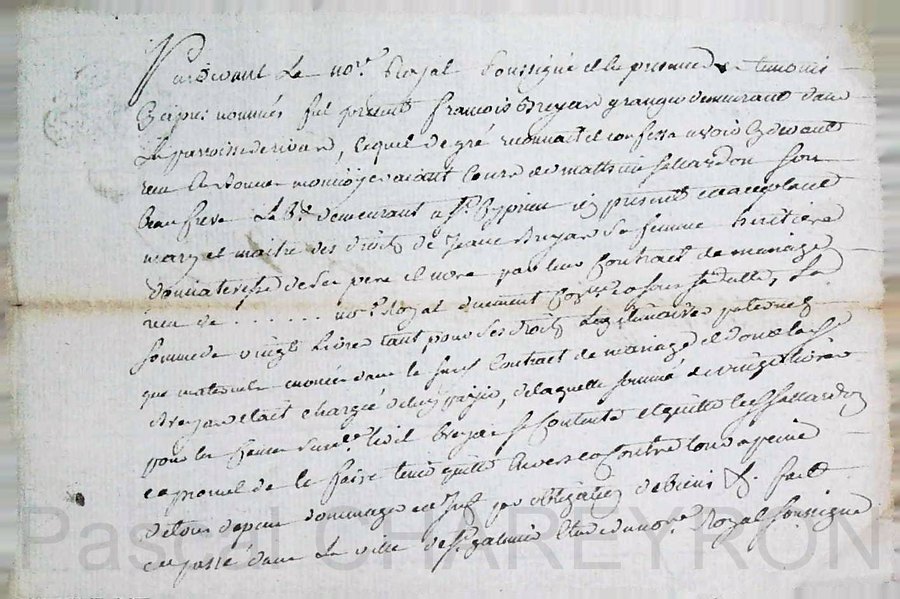 Pardevant Le no.re Royal soussigné et le presence de temoins
Cy apres nommés fut present francois Breyan granger demeurant dans
La parroisse de rivas, lequel de gré reconnait et confesse avoir Cy devant
reu En bonne monnoye ayant Cours de mathieu sallandon son
beau frere Le St demeurant a St Cyprien icy present et acceptant
mary et maitre des droits de Jeanne Breyan Sa femme heritiere
donnataire de Ses pere et mere par leur Contract de mariage
reçu de ........ no.re Royal duement
Somme de vingt Livres tant pour Ses droits Legitimaires paternels
que maternels enoncée dans le Contract de mariage et dont la
Breyan etait chargée de luy payer, de laquelle somme de vingt livres
pour les Causes led. Breyan se Contente et quitte led. Sallandon
et promet de le faire tenir quitte Envers et Contre tous a peine
de tous depens dommages par obligation de biens &. fait
et passé dans La ville de St galmier Etude du no.re Royal soussigné
Pascal CHAREYRON